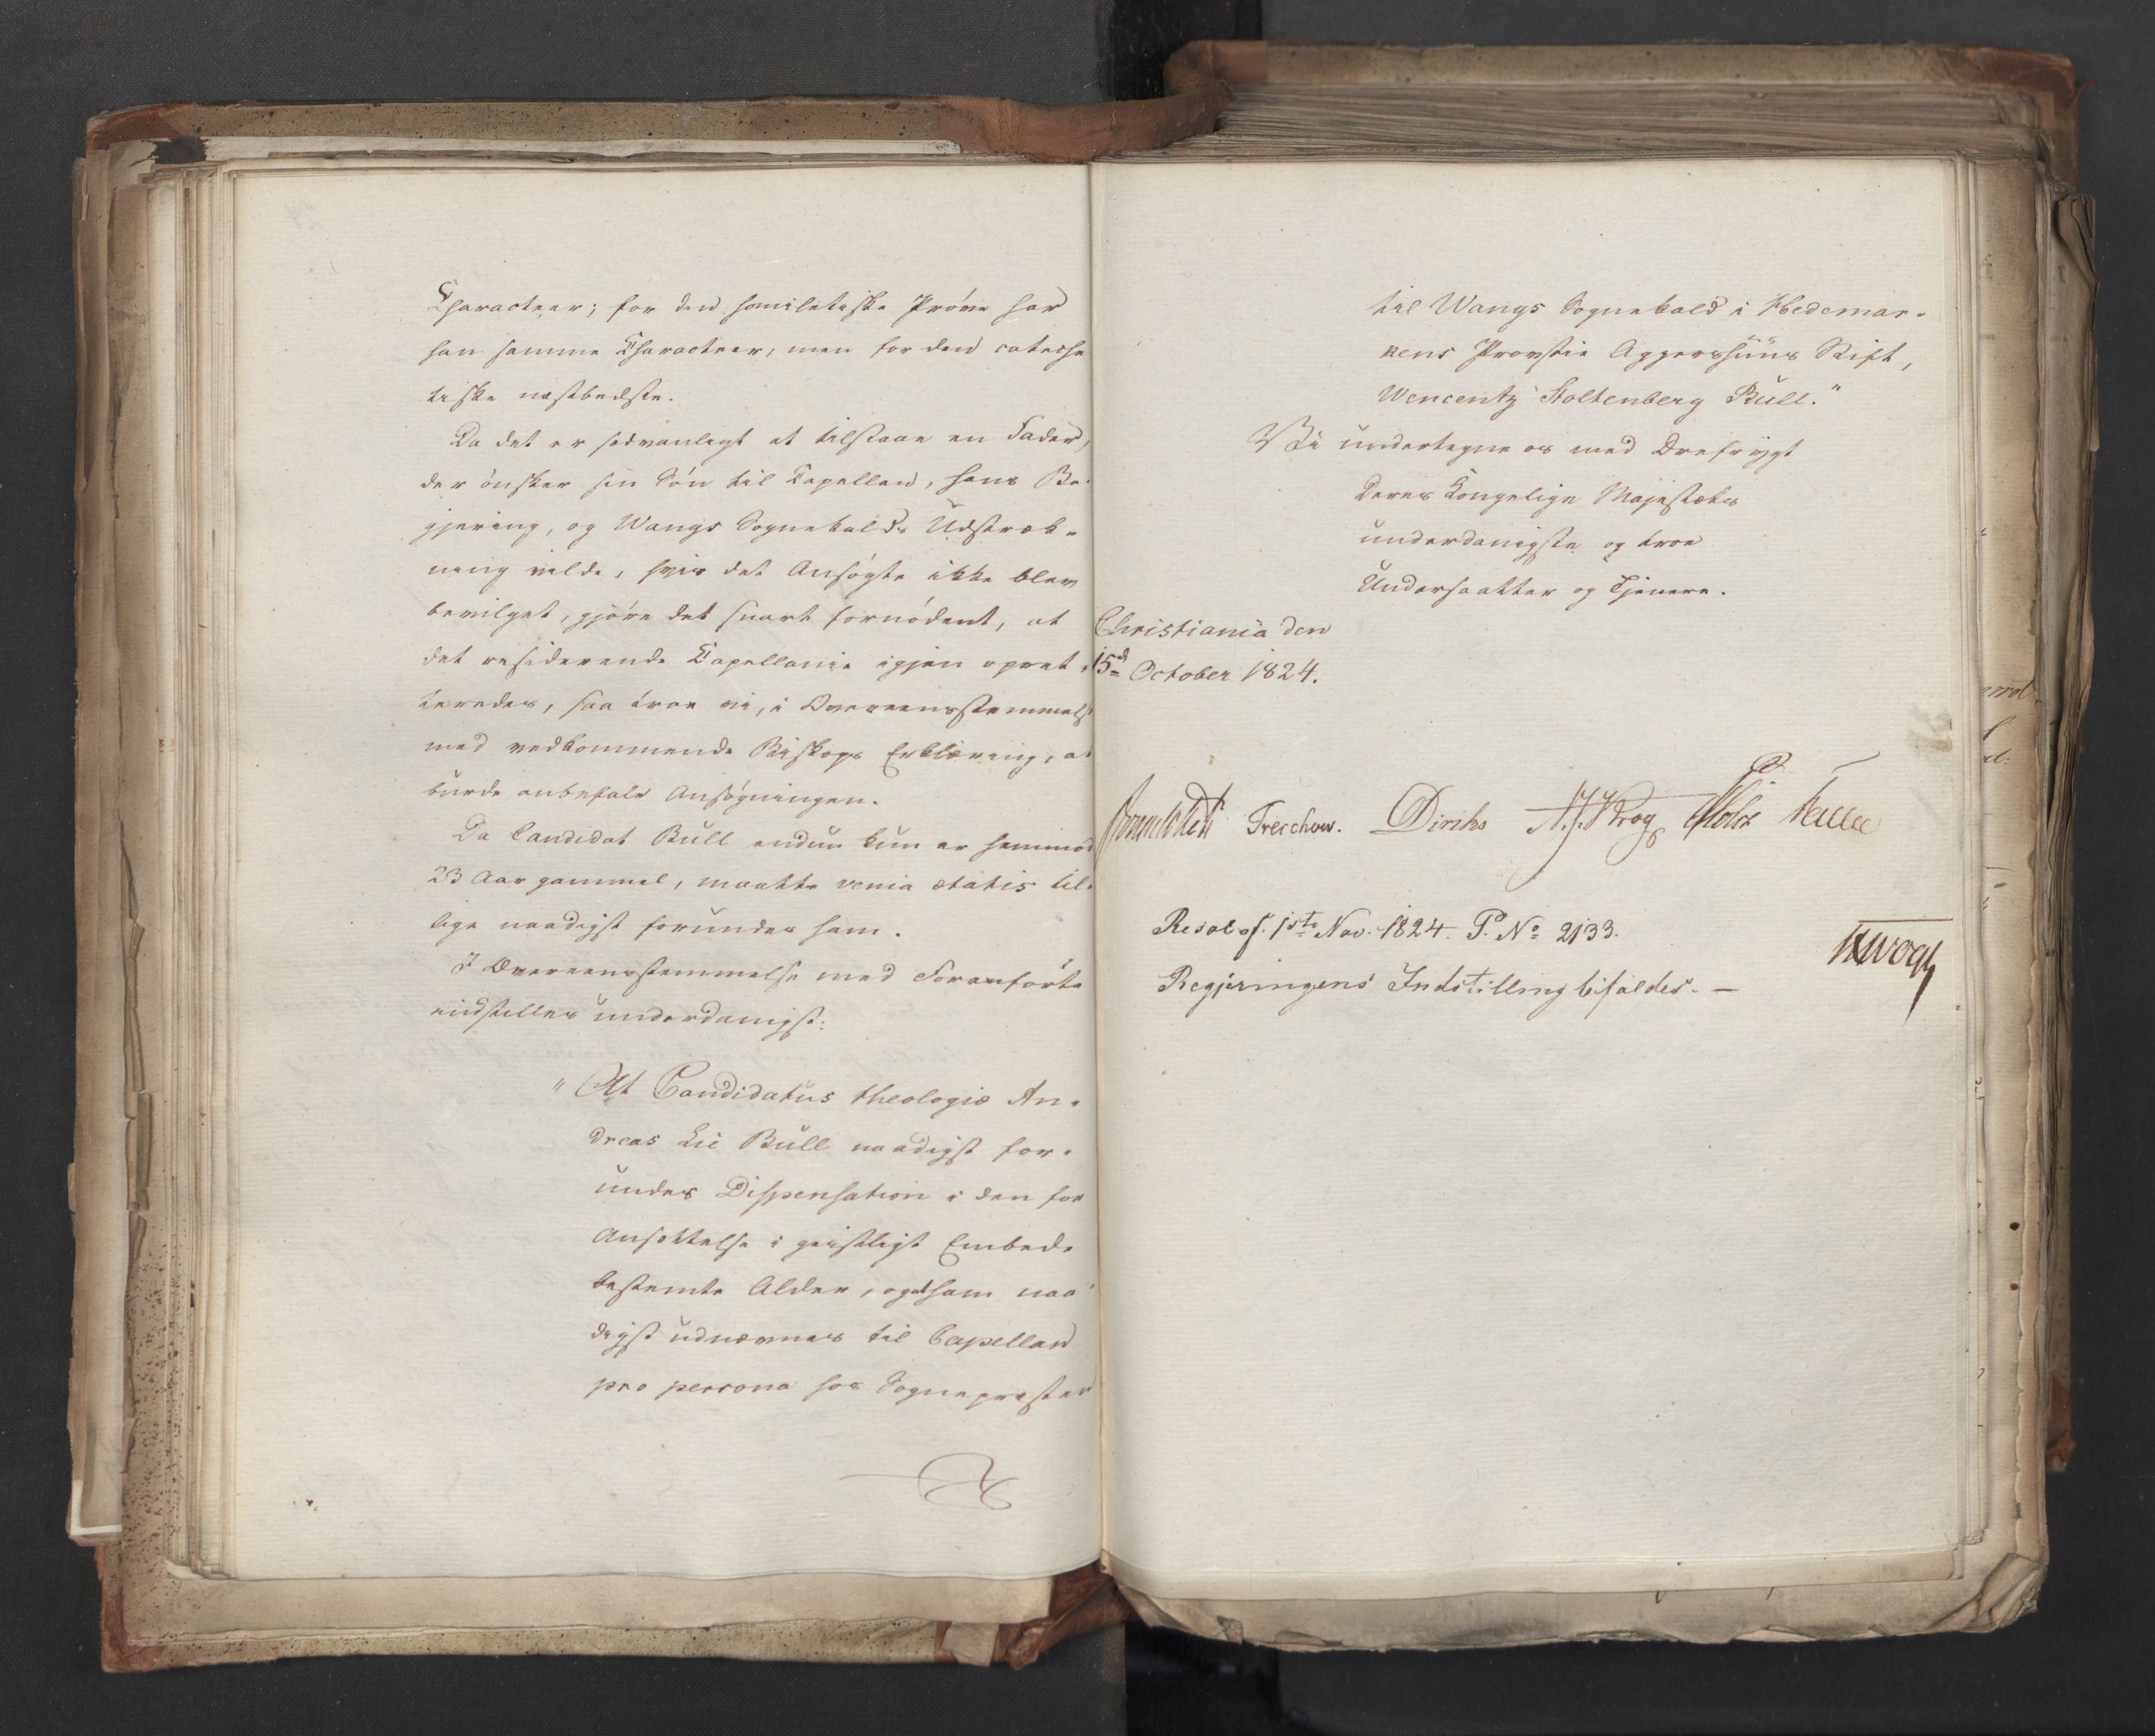 Characteer; for den homiletiske Prøve har
han samme Characteer, men for den cateche
tiske næstbedste.
Da det er sedvanligt at tilstaae en Fader,
der ønsker sin Søn til Capellan, hans Be-
gjering, og Wangs Sognekalds Udstræk-
ning vilde, hvis det Ansøgte ikke blev
bevilget, gjøre det snart fornødent, at
det residerende Capellanie igjen opret-
teredes, saa troe vi, i Overeensstemmelse
med vedkommende Biskops Erklæring, at
burde anbefale Ansøgningen.
Da Candidat Bull endnu kun er henimod
23 Aar gammel, maatte venia ætatis til-
lige naadigst forundes ham.
I Overeensstemmelse med Foranførte
indstilles underdanigst:
"At Candidatus theologiæ An-
dreas Lie Bull naadigst for-
undes Dispensation i den for
Ansættelse i geistligt Embede
bestemte Alder, og at ham naa-
digst udnævnes til Capellan
pro persona hos Sognepresten
til Wangs Sognekald i Hedemar-
kens Provstie Aggershuus Stift,
Wencentz Stoltenberg Bull."
Vi undertegne os med Ærefrygt
Deres Kongelige Majestæts
underdanigste og troe
Undersaatter og Tjenere.
Christiania den
15de October 1824.
Treschow. Diriks A. J. Krog Holst
Resol. af 1ste Nov. 1824. P. No 2133.
Regjeringens Indstilling bifaldes. —
Vogt